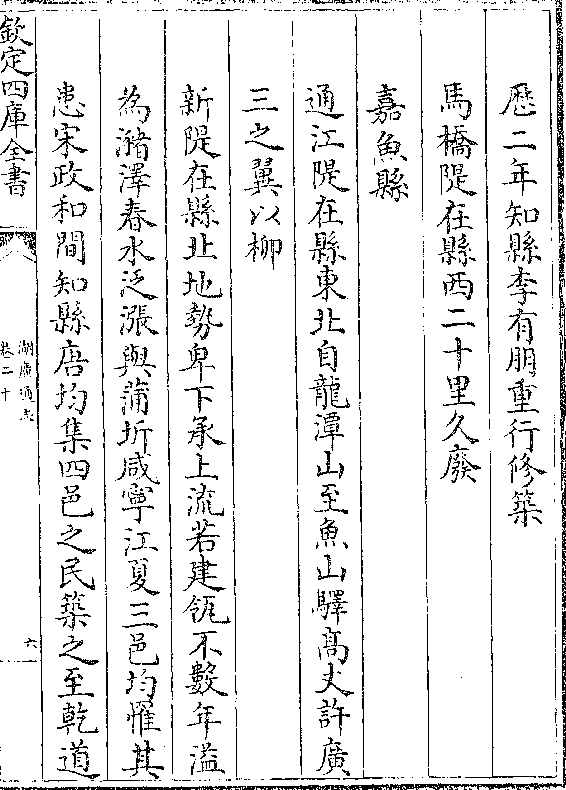 歷二年知縣李有朋重行修築
馬橋隄在縣西二十里久廢
嘉魚縣
通江隄在縣東北自龍潭山至魚山驛髙丈許廣
三之翼以柳
新隄在縣北地勢卑下承上流若建瓴不數年溢
為瀦澤春水泛漲與蒲圻咸寧江夏三邑均罹其
患宋政和間知縣唐均集四邑之民築之至乾道
欽定四庫全書
湖廣通志
卷二十
六